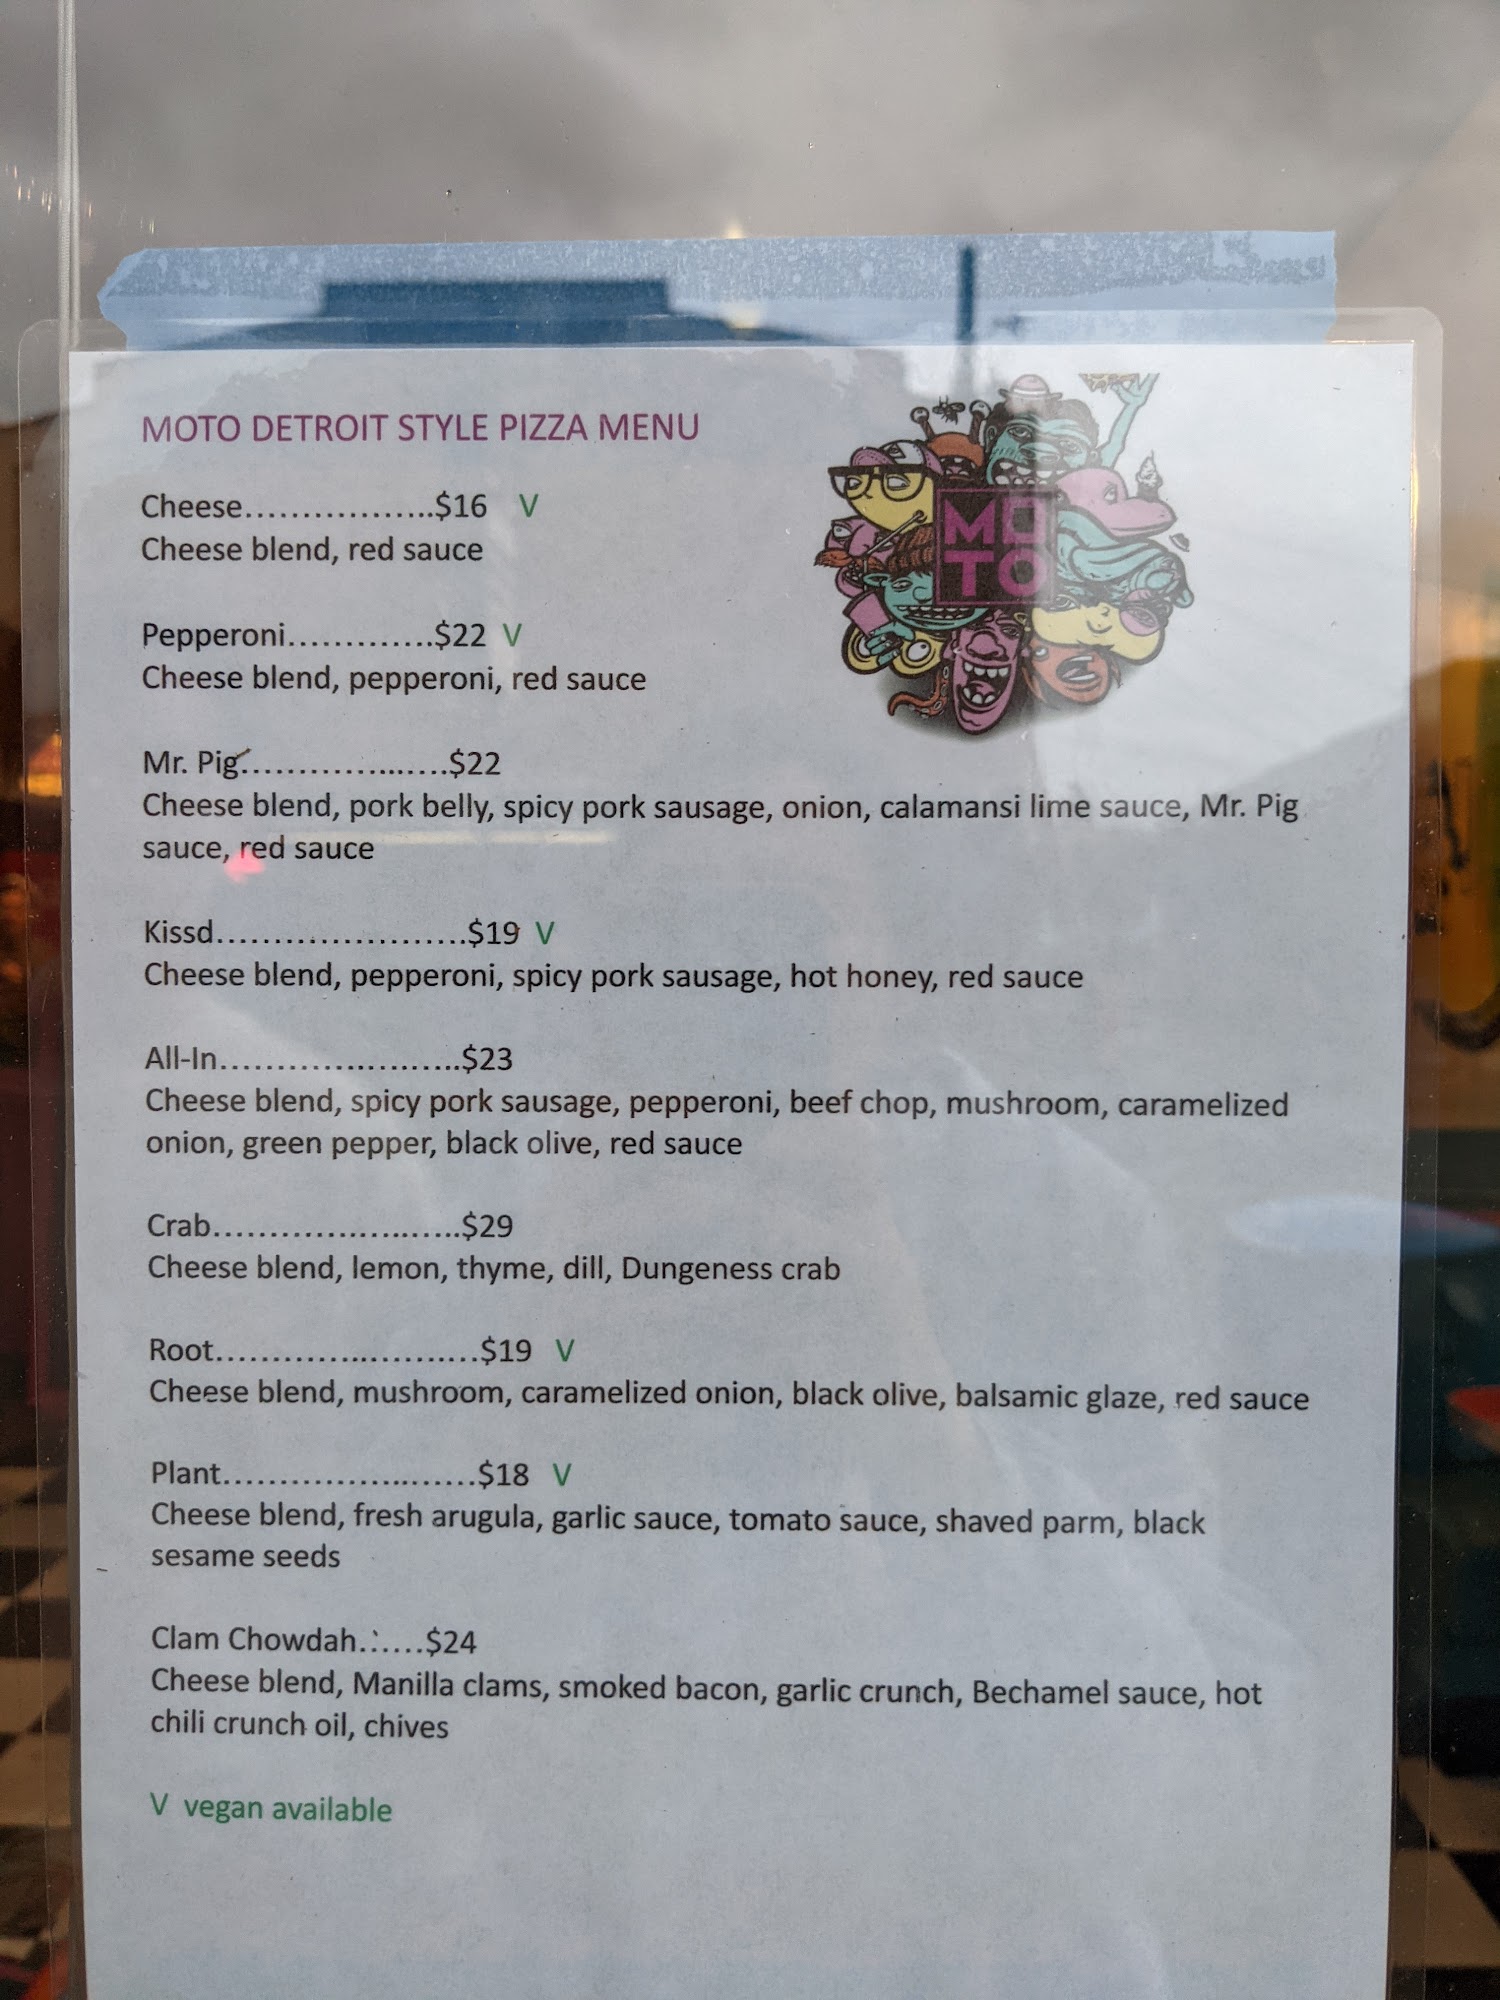 MOTO DETROIT STYLE PIZZA MENU
MO
TO
Cheese..................$16 V
Cheese blend, red sauce
Pepperoni.............$22 V
Cheese blend, pepperoni, red sauce
Mr. Pig...................$22
Cheese blend, pork belly, spicy pork sausage, onion, calamansi lime sauce, Mr. Pig
sauce, red sauce
Kissd......................$19 V
Cheese blend, pepperoni, spicy pork sausage, hot honey, red sauce
All-In......................$23
Cheese blend, spicy pork sausage, pepperoni, beef chop, mushroom, caramelized
onion, green pepper, black olive, red sauce
Crab.......................$29
Cheese blend, lemon, thyme, dill, Dungeness crab
Root........................$19 V
Cheese blend, mushroom, caramelized onion, black olive, balsamic glaze, red sauce
Plant.......................$18 V
Cheese blend, fresh arugula, garlic sauce, tomato sauce, shaved parm, black
sesame seeds
Clam Chowdah.......$24
Cheese blend, Manilla clams, smoked bacon, garlic crunch, Bechamel sauce, hot
chili crunch oil, chives
V vegan available